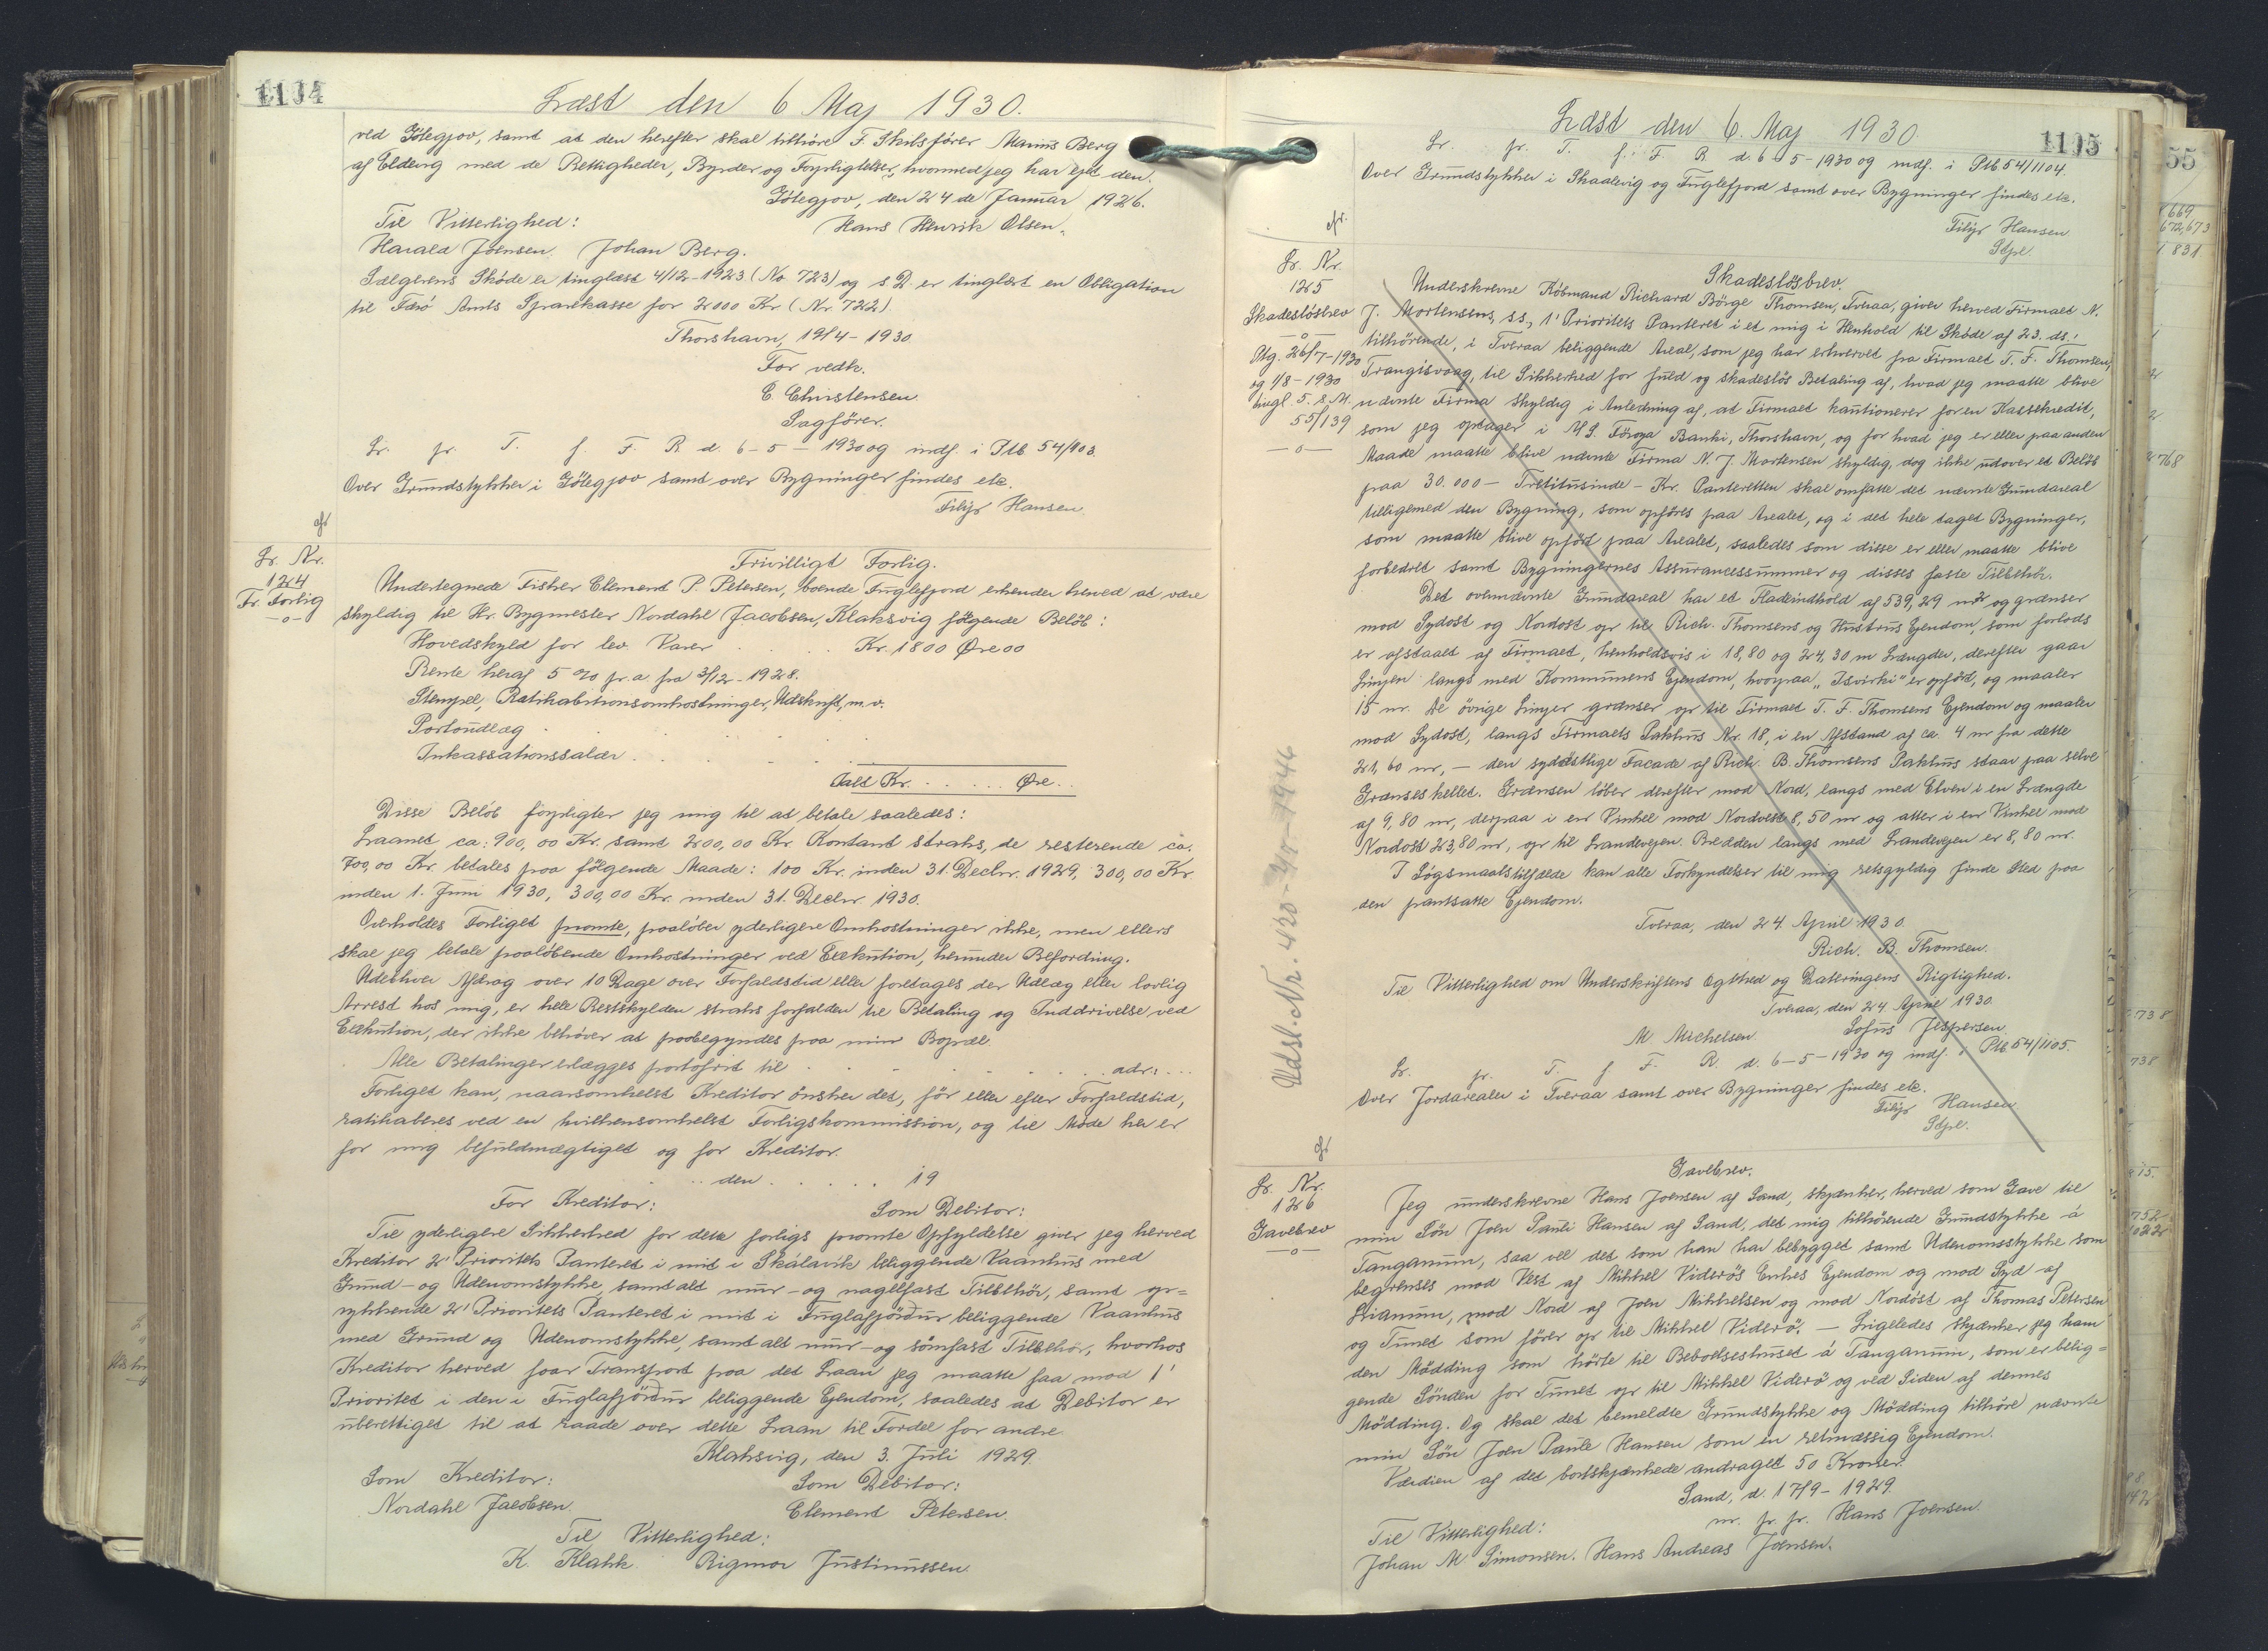 1104
Læst den 6 Maj 1930.
ved Götegjov, samt at den herefter skal tilhöre F. Skibsförer Marius Berg
af Elduvig med de Rettigheder, Byrder og Forpligtelser, hvormed jeg har ejet den.
Götegjov, den 24 de Januar 1926.
Til Vitterlighed:
Hans Henrik Olsen.
Harald Joensen. Johan Berg.
Sælgerens Sköde er tinglæst 4/12-1923 (No 723) og s D. er tinglæst en Obligation
til Færö Amts Sparekasse for 2000 Kr (Nr 722).
Thorshavn, 19/4-1930
For vedk.
C. Christensen
Sagförer.
Lr. pr. T. f. F. R d. 6-5-1930 og indf. i Ptb 54/1103.
Over Grundstykker i Götegjov samt over Bygninger findes etc.
Filip Hansen
cfr
Lr. Nr.
124
Fr. Forlig
-o-
Frivilligt Forlig.
Undertegnede Fisker Clement P. Petersen, boende Fuglefjord erkender herved at være
skyldig til Hr. Bygmester Nordahl Jacobsen, Klaksvig følgende Beløb:
Hovedskyld for lev. Varer . . . Kr. 1800 Øre 00
Rente heraf 5 % pr. a. fra 3/12-1928.
Stempel, Ratihabitionsomkostninger, Udskrift, m.v.
Portoudlæg
Inkassationssalær
Ialt Kr. . . . . . Øre . .
Disse Beløb forpligter jeg mig til at betale saaledes:
Laanet ca: 900,00 Kr. samt 200,00 Kr. Kontant straks, de resterende ca.
700,00 Kr. betales paa følgende Maade: 100 Kr. inden 31. Decbr. 1929, 300,00 Kr
inden 1. Juni 1930, 300,00 Kr. inden 31. Decbr. 1930.
Overholdes Forliget promte, paaløber yderligere Omkostninger ikke, men ellers
skal jeg betale paaløbende Omkostninger ved Exekution, herunder Befordring.
Udebliver Afdrag over 10 Dage over Forfaldstid eller foretages der Udlæg eller lovlig
Arrest hos mig, er hele Restskylden straks forfalden til Betaling og Inddrivelse ved
Exekution, der ikke behøver at paabegyndes paa min Bopæl.
Alle Betalinger erlægges portofrit til . . . . . adr: . . .
Forliget kan, naarsomhelst Kreditor ønsker det, før eller efter Forfaldstid,
ratihaberes ved en hvilkensomhelst Forligskommission, og til Møde her er
for mig befuldmægtiget og for Kreditor.
den . . . . . 19
For Kreditor: Som Debitor:
Til yderligere Sikkerhed for dette forligs promte Opfyldelse giver jeg herved
Kreditor 2' Prioritets Panteret i mit i Skálavik beliggende Vaanhus med
Grund- og Udenomstykke, samt alt mur- og nagelfast Tilbehör, samt op-
rykkende 2' Prioritets Panteret i mit i Fuglafjørdur beliggende Vaanhus
med Grund og Udenomstykke, samt alt mur- og sömfast Tilbehör, hvorhos
Kreditor herved faar Transport paa det Laan jeg maatte faa mod 1'
Prioritet i den i Fuglafjørdur beliggende Ejendom, saaledes at Debitor er
uberettiget til at raade over dette Laan til Fordel for andre
Klaksvig, den 3. Juli 1929.
Som Kreditor: Som Debitor:
Nordahl Jacobsen. Clement Petersen.
Til Vitterlighed:
K. Klakk Rigmor Justinussen.
Læst den 6. Maj 1930
1105
Lr. pr. T. f. F. R d. 6-5-1930 og indf. i Ptb 54/1104.
Over Grundstykker i Skaalevig og Fuglefjord samt over Bygninger findes etc.
Filip Hansen
Sdpl.
cfr.
Lr. Nr.
125
Skadeslösbrev
-o-
Qtg. 26/7-1930
og 1/8-1930
tingl. 5. 8. M.
55/139
-o-
Udsl. Nr. 420-Yr-1946
Skadeslösbrev.
Underskrevne Köbmand Richard Börge Thomsen, Tveraa, giver herved Firmaet N.
J. Mortensens, s.s., 1' Prioritets Panteret i et mig i Henhold til Sköde af 23. ds.
tilhörende, i Tveraa beliggende Areal, som jeg har erhvervet fra Firmaet T. F. Thomsen,
Trangisvaag, til Sikkerhed for fuld og skadeslös Betaling af, hvad jeg maatte blive
nævnte Firma skyldig i Anledning af, at Firmaet kautionerer for en Kassekredit,
som jeg optager i A/S. Föroya Banki, Thorshavn, og for hvad jeg er eller paa anden
Maade maatte blive nævnte Firma N. J. Mortensen skyldig, dog ikke udover et Beløb
paa 30.000 - Tretitusinde - Kr. Panteretten skal omfatte det nævnte Grundareal
tilligemed den Bygning, som opføres paa Arealet, og i det hele taget Bygninger,
som maatte blive opført paa Arealet, saaledes som disse er eller maatte blive
forbedret samt Bygningernes Assurancessummer og disses faste Tilbehör.
Det ovennævnte Grundareal har et Fladeindhold af 539,29 m² og grænser
mod Sydost og Nordost op til Rich. Thomsens og Hustrus Ejendom, som forlods
er afstaaet af Firmaet, henholdsvis i 18,80 og 24,30 m Længder, derefter gaar
Linjen langs med Kommunens Ejendom, hvorpaa "Isvirki" er opført, og maaler
15 m. De övrige Linjer grænser op til Firmaet T. F. Thomsens Ejendom og maaler
mod Sydost, langs Firmaets Pakhus Nr. 18, i en Afstand af ca. 4 m fra dette
21,60 m, - den sydöstlige Facade af Rich. B. Thomsens Pakhus staar paa selve
Grænseskellet. Grænsen löber derefter mod Nord, langs med Elven i en Længde
af 9,80 m, derpaa i en Vinkel mod Nordvest 8,50 m og atter i en Vinkel mod
Nordost 23,80 m, op til Landevejen. Bredden langs med Landevejen er 8,80 m.
I Søgsmaalstilfælde kan alle Forkyndelser til mig retsgyldig finde Sted paa
den pantsatte Ejendom.
Tveraa, den 24. April 1930.
Rich. B. Thomsen.
Til Vitterlighed om Underskriftens Ægthed og Dateringens Rigtighed.
Tveraa, den 24. April 1930.
M Michelsen Sofus Jespersen
Lr. pr. T. f F. R. d. 6-5-1930 og indf. i Ptb 54/1105.
Over Jordarealer i Tveraa samt over Bygninger findes etc.
Filip Hansen
Sdpl.
cfr
Lr. Nr.
126
Gavebrev
-o-
Gavebrev.
Jeg underskrevne Hans Joensen af Sand, skjænker, herved som Gave til
min Sön Joen Pauli Hansen af Sand, det mig tilhörende Grundstykke á
Tanganum, saa vel det som han har bebygget samt Udenomsstykke som
begrænses mod Vest af Mikkel Viderös Enkes Ejendom og mod Syd af
Lianum, mod Nord af Joen Mikkelsen og mod Nordöst af Thomas Petersen
og Tunet som förer op til Mikkel Viderö. - Ligeledes skjænker jeg ham
den Mödding som hörte til Beboelseshuset á Tanganum, som er belig-
gende Sönden for Tunet op til Mikkel Viderö og ved Siden af dennes
Mödding. Og skal det bemeldte Grundstykke og Mödding tilhöre nævnte
min Sön Joen Paule Hansen som en retmæssig Ejendom.
Værdien af det bortskjænkede andraget 50 Kroner.
Sand, d. 17/9-1929.
m. f. p. Hans Joensen.
Til Vitterlighed:
Johan M Simonsen. Hans Andreas Joensen.
55
669
672,673
831
768
738
738